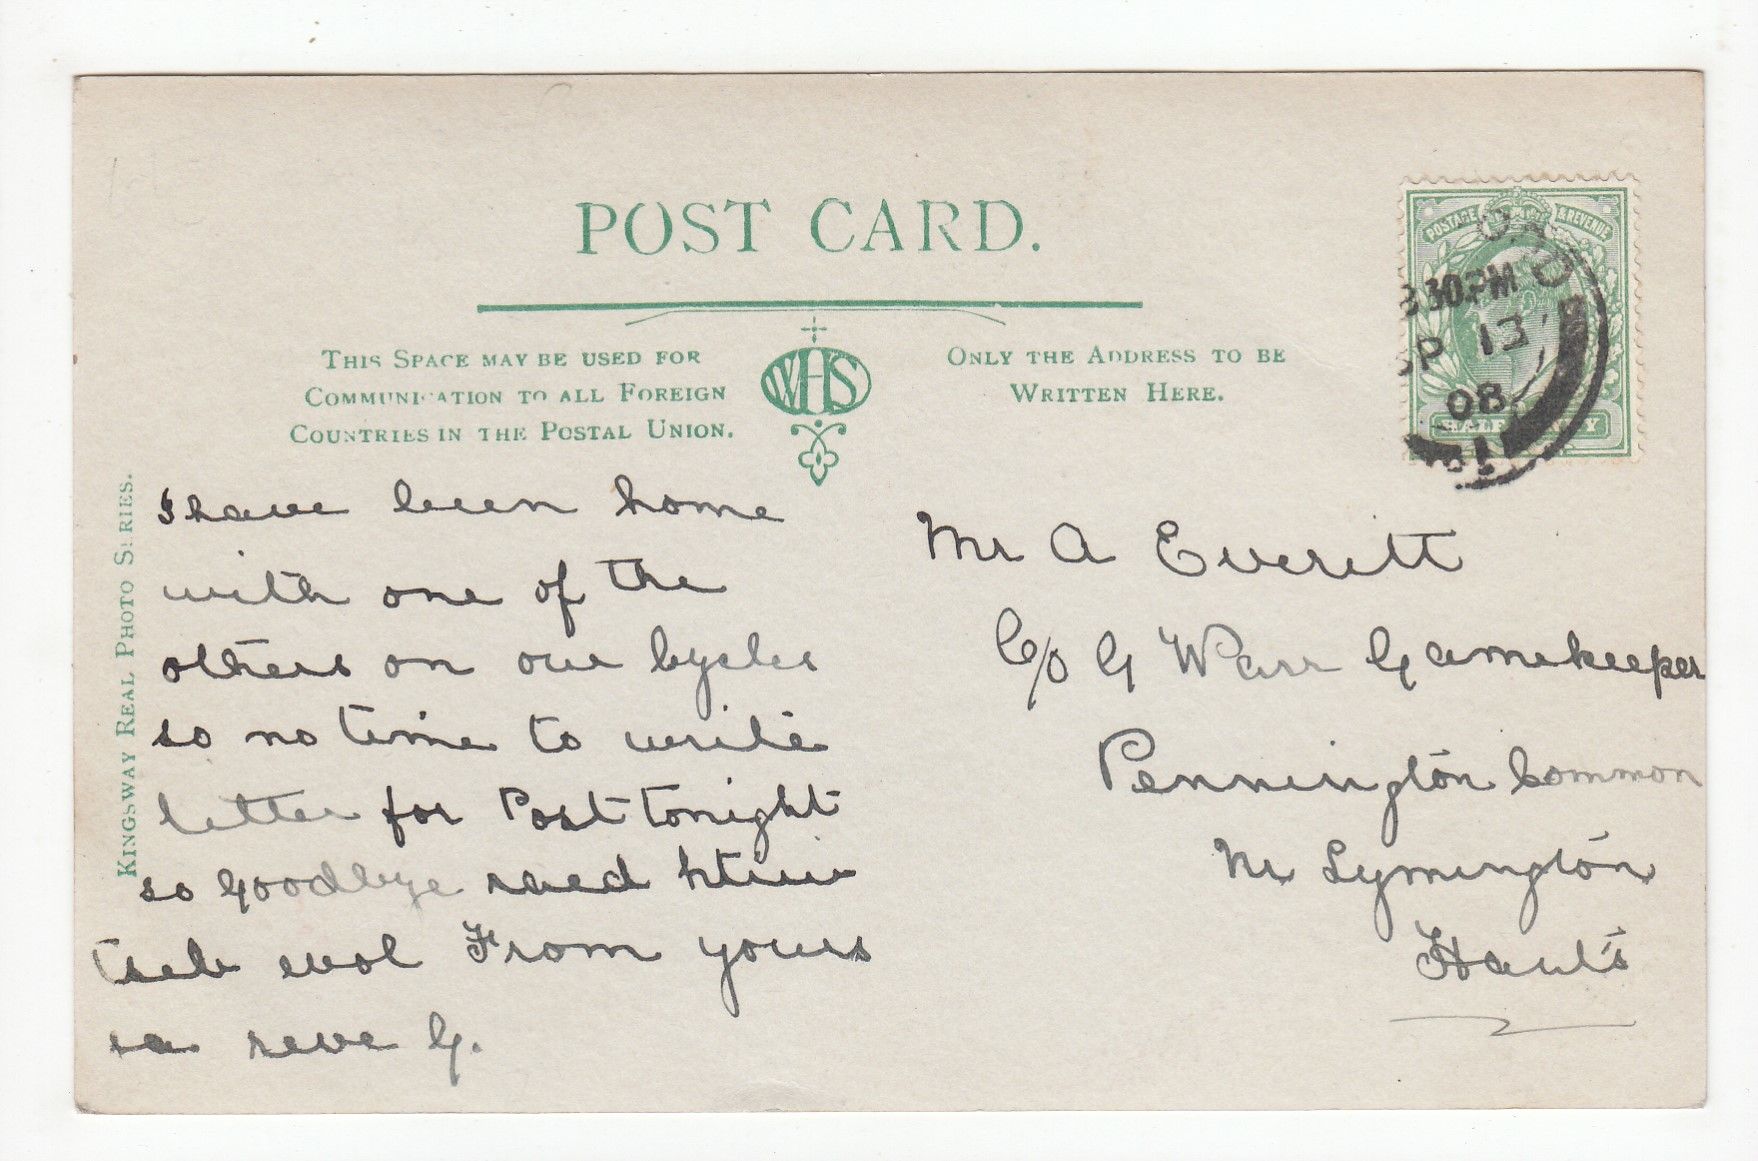 POST CARD.
THIS SPACE MAY BE USED FOR
COMMUNICATION TO ALL FOREIGN
COUNTRIES IN THE POSTAL UNION.
WHS
ONLY THE ADDRESS TO BE
WRITTEN HERE.
POSTAGE & REVENUE
30 PM
SP 13
08
HALFPENNY
KINGSWAY REAL PHOTO SERIES.
I have been home
with one of the
others on our bycles
so no time to write
letter for Post tonight
so goodbye raed htiw
tseb evol From yours
sa reve G.
Mr A Everitt
C/o G Warr Gamekeeper
Pennington Common
Nr Lymington
Hants